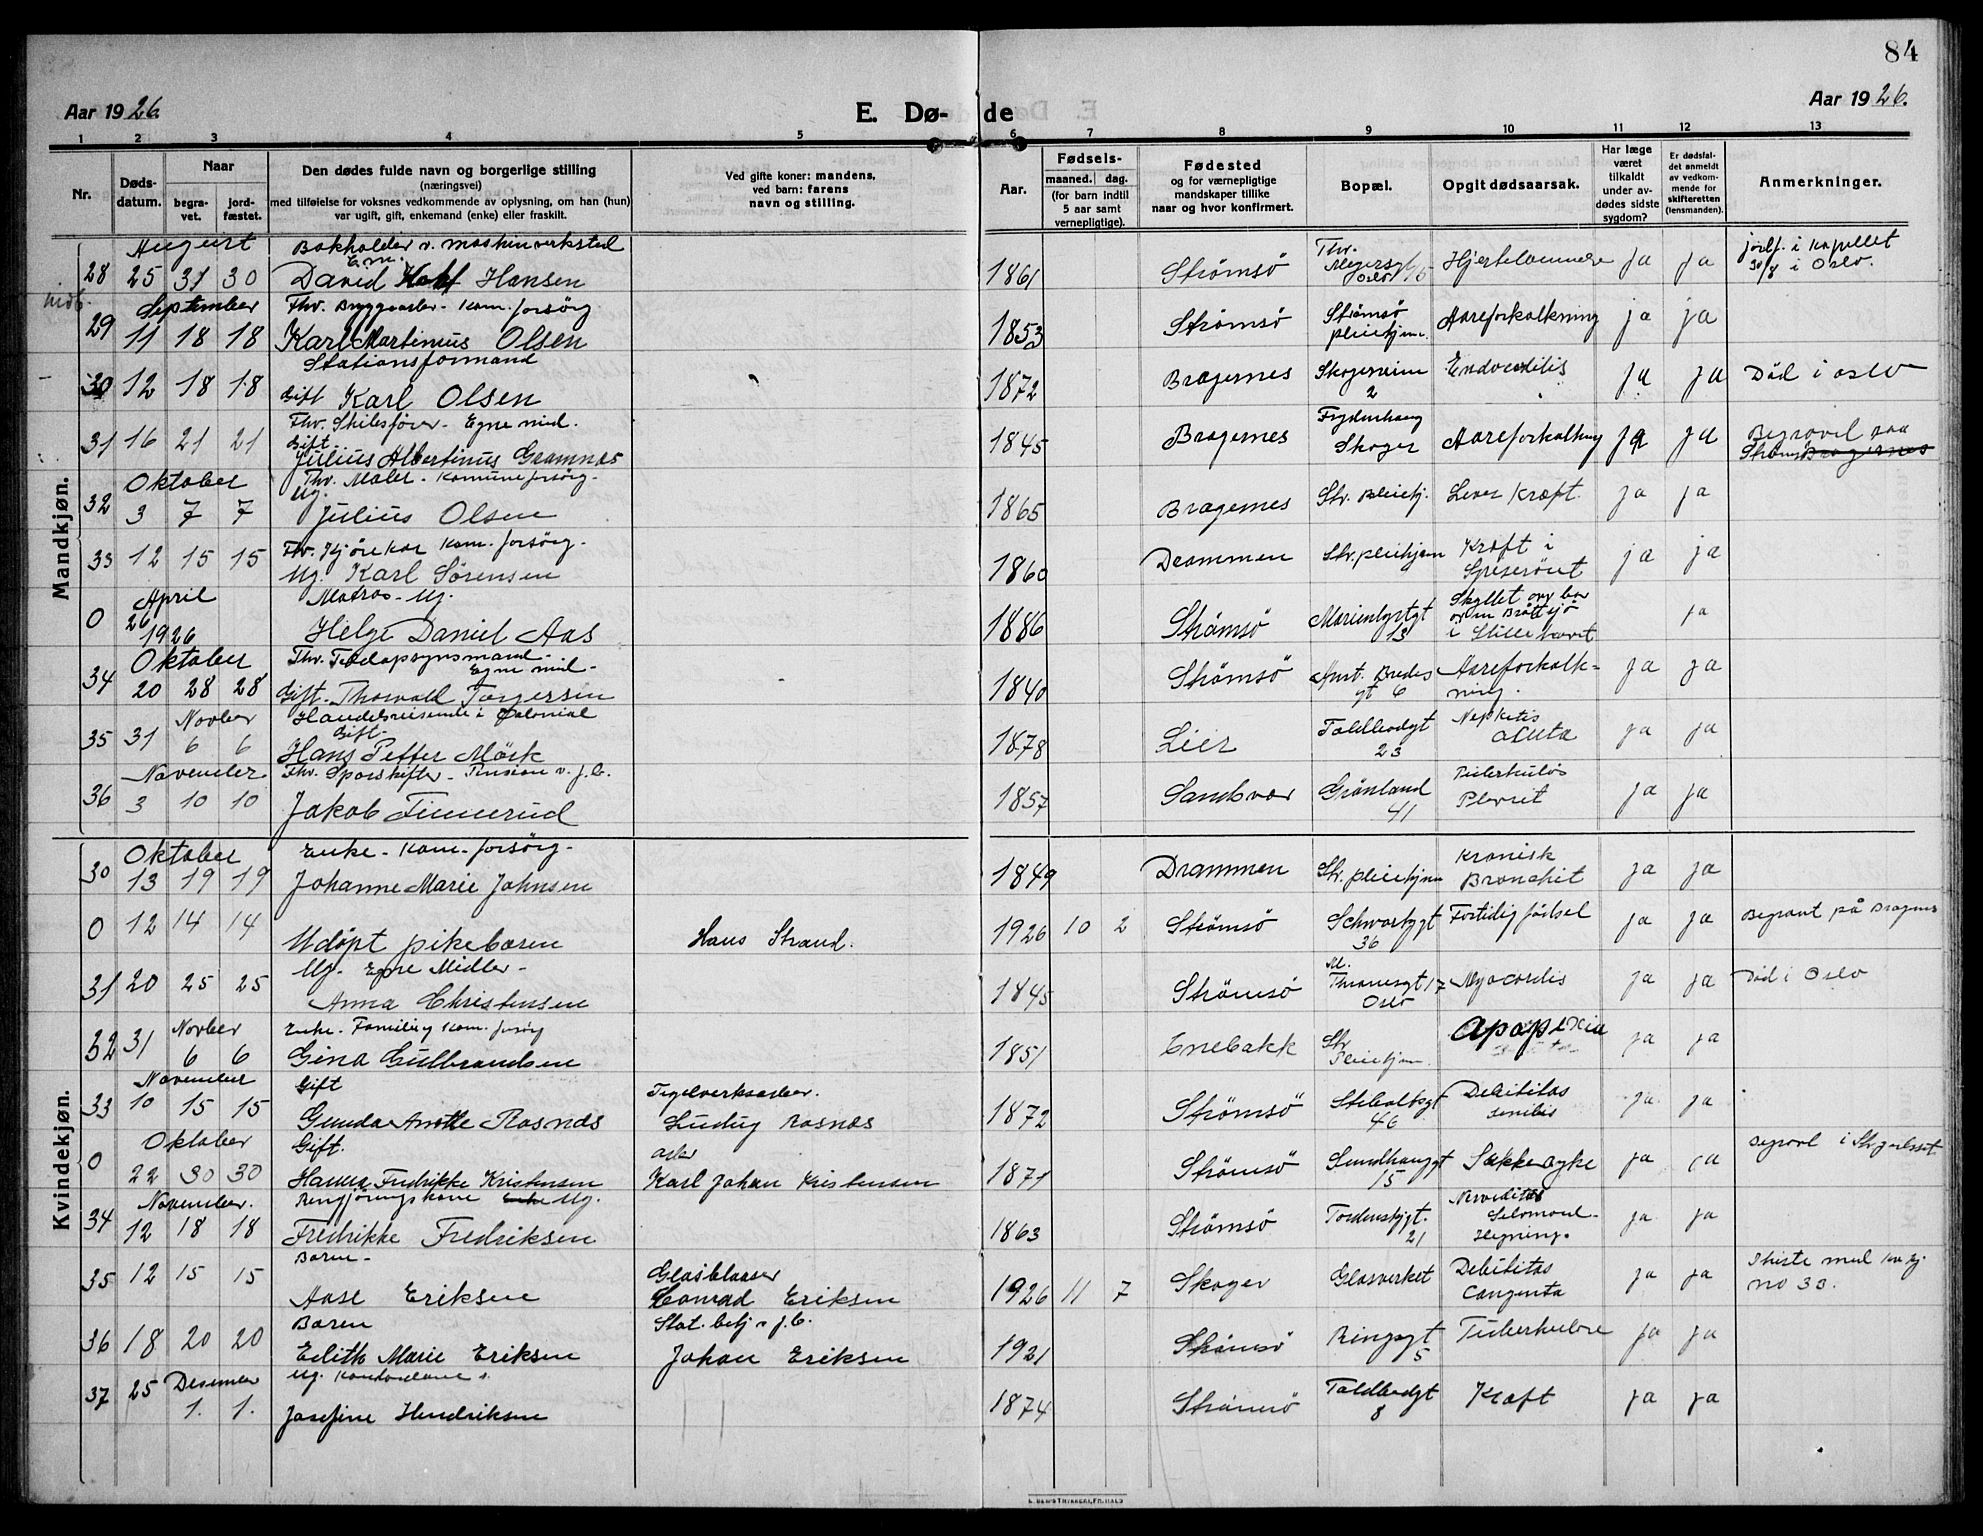 84
Aar 1926.
E. Dø-
de
Aar 1926.
1 2 3 4 5 6 7 8 9 10 11 12 13
Nr.
Døds-
datum.
Naar
begra-
vet.
jord-
fæstet.
Den dødes fulde navn og borgerlige stilling
(næringsvei)
med tilføielse for voksnes vedkommende av oplysning, om han (hun)
var ugift, gift, enkemand (enke) eller fraskilt.
Ved gifte koner: mandens,
ved barn: farens
navn og stilling.
Aar.
Fødsels-
maaned. dag.
(for barn indtil
5 aar samt
vernepligtige).
Fødested
og for værnepligtige
mandskaper tillike
naar og hvor konfirmert.
Bopæl.
Opgit dødsaarsak.
Har læge
været
tilkaldt
under av-
dødes sidste
sygdom?
Er dødsfal-
det anmeldt
av vedkom-
mende for
skifteretten
(lensmanden).
Anmerkninger.
Mandkjøn.
August Bokholder v. maskinverksted
Em.
28 25 31 30 David Hansen 1861 Strømsø Thv. Meyersgt Oslo Hjertelammelse ja ja jordf. i kapellet 30/8 i Oslo.
September Thv. Bryggearb. Kom. forsørg
29 11 18 18 Karl Martinius Olsen 1853 Strømsø Strømsø pleiehjem. Aareforkalkning ja ja
Stationsformand
30 12 18 18 Gift Karl Olsen 1872 Bragernes Skogerveien 2 Endocarditis ja ja Död i Oslo
Thv. Skibsfører. Egne mid.
31 16 21 21 Gift. Julius Albertinus Gramnæs 1845 Bragernes Frydenhaug Skoger Aareforkalkning ja ja Begravet paa Strømsø Bragernes
Oktober Thv. Maler. Kommuneforsørg.
32 3 7 7 Ug. Julius Olsen 1865 Bragernes Str. Pleiehj. Lever Kræft. ja ja
Thv. Kjørekar Kom. forsørg.
33 12 15 15 Ug. Karl Sørensen 1860 Drammen Str. pleiehjem Kræft i Spiserøret ja ja
April Matros - Ug.
0 26 1926 Helge Daniel Aas 1886 Strømsø Marienlystgt 13 Skyllet over bor av en Bråttsjö i Stillehavet ja
Oktober Thv. Toldopsynsmand - Egne mid -
34 20 28 28 Gift. Thorvald Torgersen 1840 Strømsø Amt. Bredes gt 6 Aareforkalkning. ja ja
Novber Handelsreisende i Colonial
35 31 6 6 Gift - Hans Petter Mörk 1878 Lier Toldbodgt 23 acuta ja ja
November Thv. Sporskifter - Pension v. J.b.
36 3 10 10 Jakob 1857 Sandsvær Grönland 41 Tuberkuløs Plevrit ja ja
Kvindekjøn.
Oktober Enke - Kom. forsörg -
30 13 19 19 Johanne Marie Johnsen 1849 Drammen Str. pleiehjem Kronisk Bronchit ja ja
0 12 14 14 Udöpt pikebarn Hans Strand. 1926 10 2 Strømsø Schwartzgt 36 Fortidig fødsel ja ja Begravet på Bragernes
Ug. Egne Midler -
31 20 25 25 Anna Christensen 1845 Strömsö M. Thranesgt 17 Oslo Myocardis ja ja Död i Oslo
Novber Enke. Familie og kom. forsörg
32 31 6 6 Gina Gulbrandsen 1851 Enebakk Str Pleiehjem Apopexia ja ja
November Gift Teglverksarber.
33 10 15 15 Gunda Anette Rosnæs Ludvig Rosnæs 1872 Strömsö Stiboltsgt 46 Debilitas senilis ja ja
Oktober Gift. arb
0 22 30 30 Hanna Fredrikke Kristensen Karl Johan Kristensen 1871 Strömsö Sundhaugt 15 Sukkersyke ja ja
November. Rengjøringskone Enke Ug.
34 12 18 18 Fredrikke Fredriksen 1863 Strømsø Tordenskjgt. 21 ja ja
Barn - Glasblaaser
35 12 15 15 Aase Eriksen Conrad Eriksen 1926 11 7 Skoger Glasverket Debilitas Congenita ja ja I kiste med kv. kj no 33.
Barn Stat. betj v J.b.
36 18 20 20 Edith Marie Eriksen Johan Eriksen 1921 Strömsö Ringsgt 5 Tuberkulose ja ja
Desember Ug. Kontordame
37 25 1. 1. Josefine Hendriksen 1874 Strömsö Toldbodgt 8 Kræft ja ja